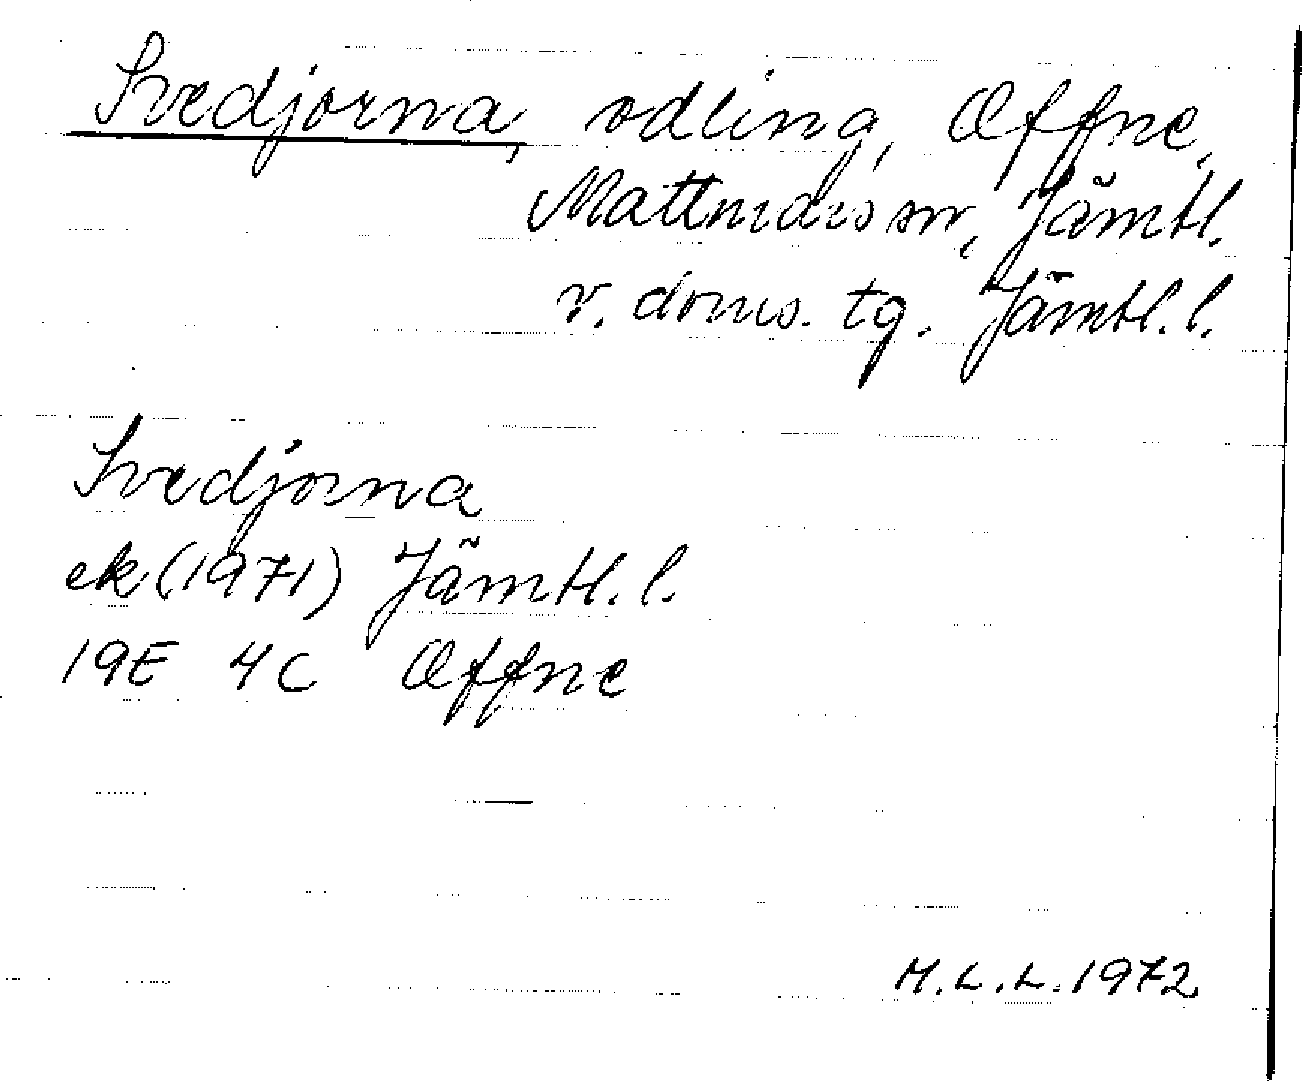 Svedjorna, odling, Offne,
Mattmars sn, Jämtl.
v. doms. tg. Jämtl. l.
Svedjorna
ek (1971) Jämtl. l.
19E 4C Offne
M.L.L. 1972